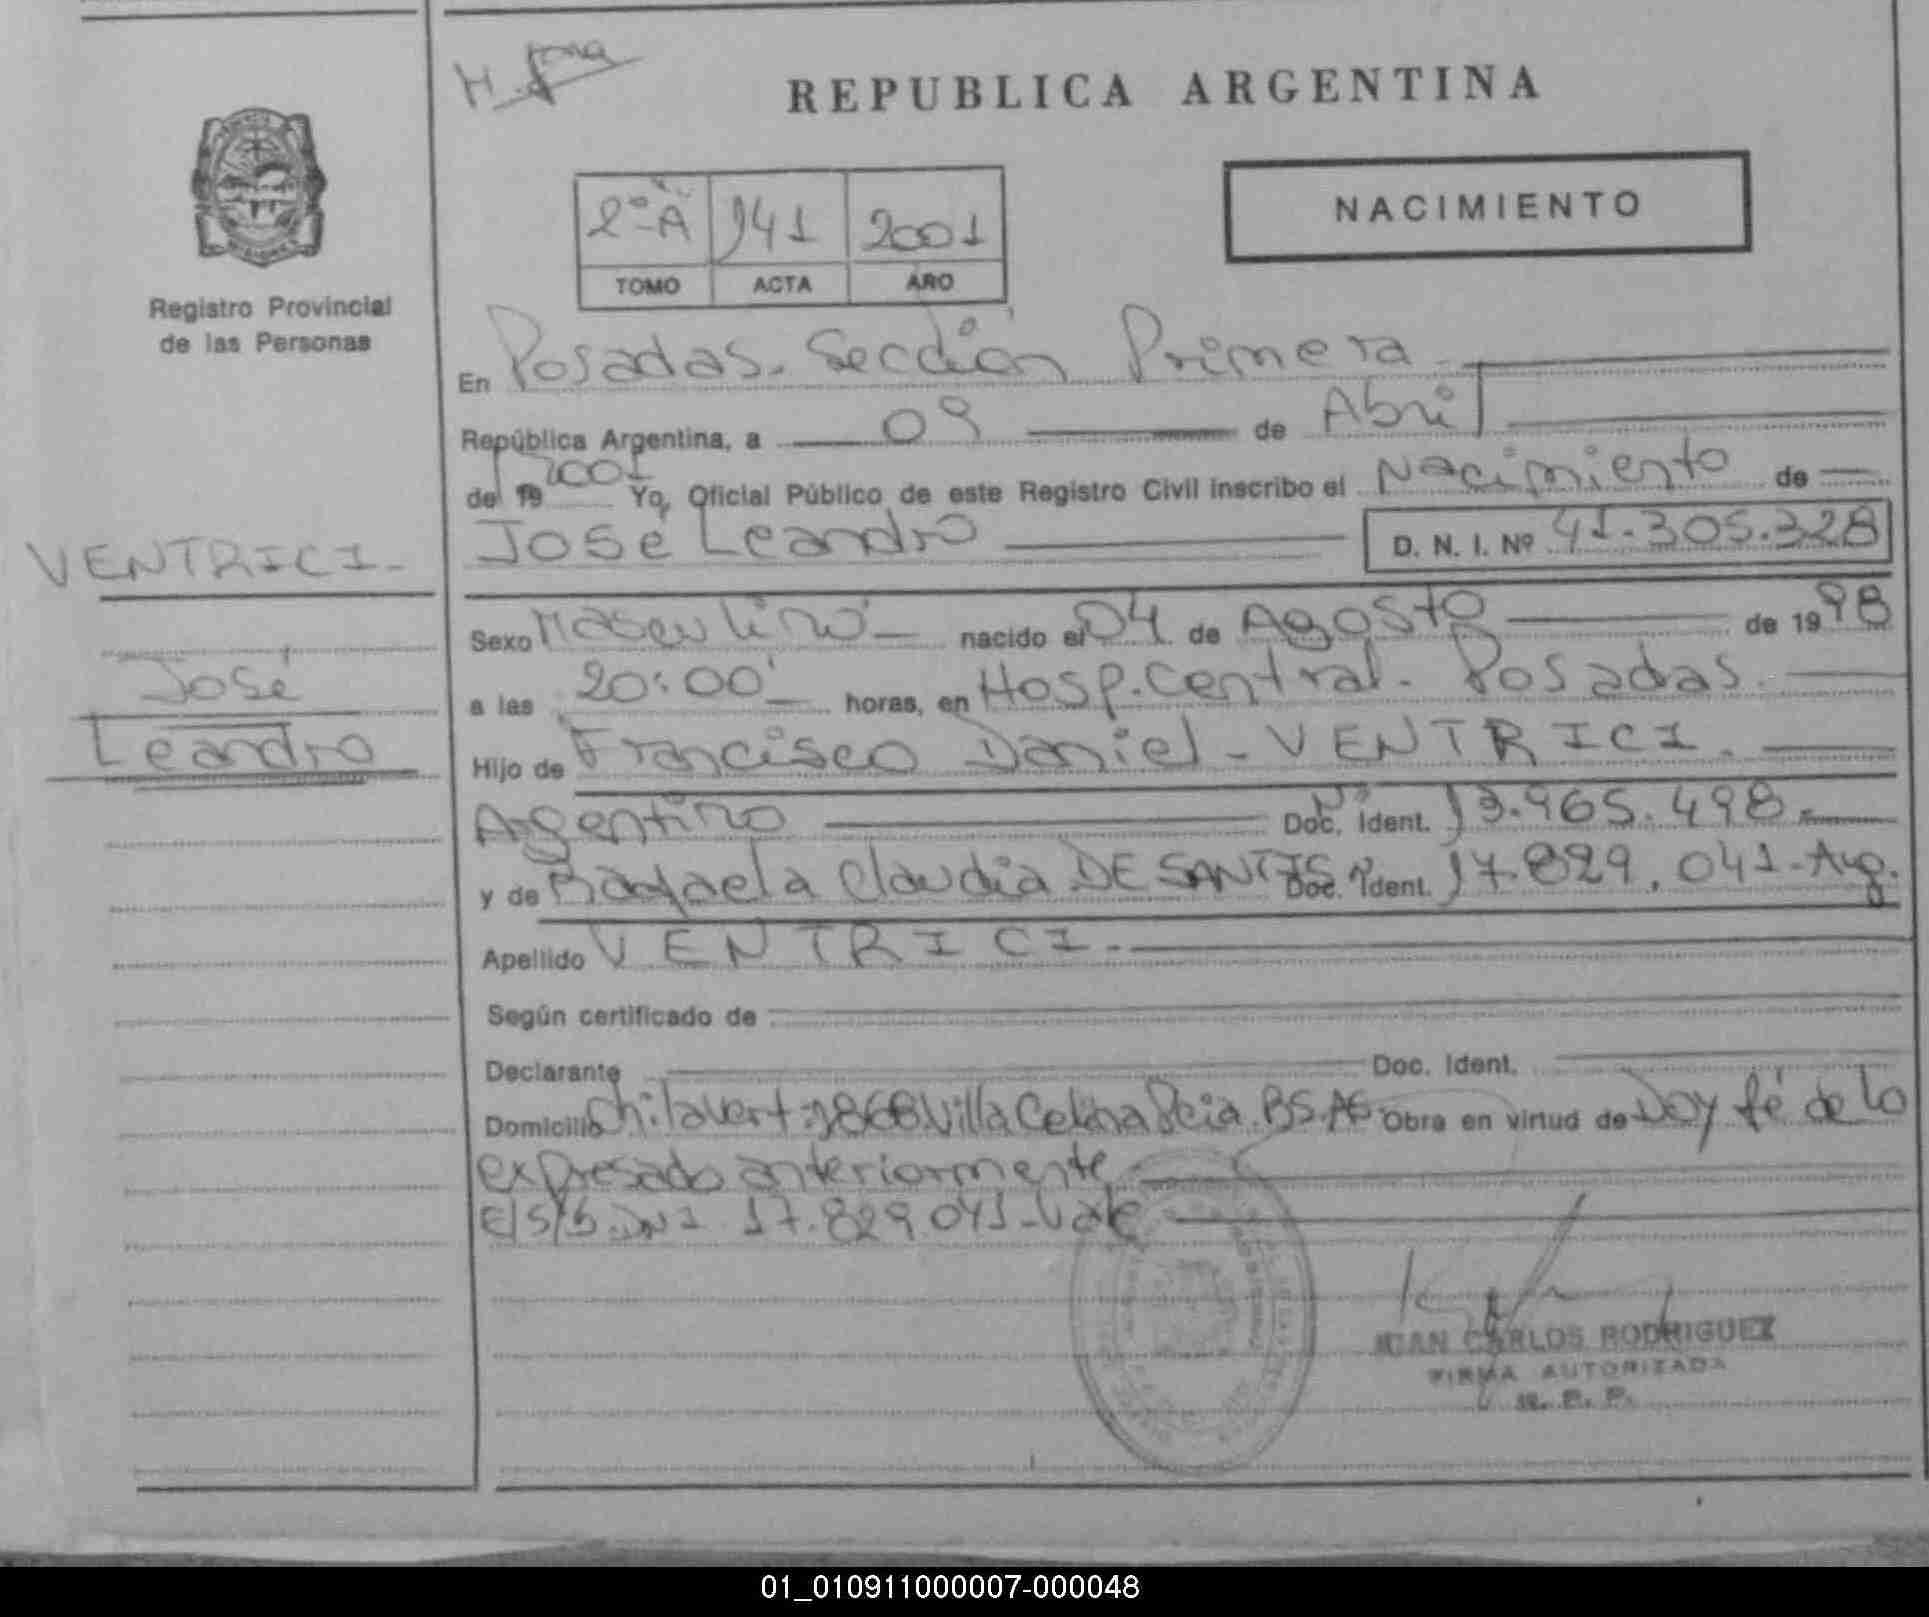 H. 
REPUBLICA ARGENTINA
NACIMIENTO
2º-A 141 2001
TOMO ACTA AÑO
Registro Provincial
de las Personas
En Posadas. Sección Primera
República Argentina, a 09 de Abril
de 19 2001 Yo, Oficial Público de este Registro Civil inscribo el Nacimiento de
José Leandro D. N. I. Nº 41.305.328
VENTRICI.-
José
Leandro
Sexo Masculino nacido el 04 de Agosto de 1998
a las 20:00 horas, en Hosp. Central. Posadas.
Hijo de Francisco Daniel - VENTRICI.
Argentino Doc. Ident. 13.965.498.
y de Rafaela Claudia DE SANTIS Doc. Ident. 17.829.041-Arg.
Apellido VENTRICI.
Según certificado de
Declarante Doc. Ident.
Domicilio Chilavert 1868 Villa Celina Pcia. BS.AS. Obra en virtud de Doy fé de lo
expresado anteriormente
E/S/B. DNI 17.829.041-Vale
JUAN CARLOS RODRIGUEZ
FIRMA AUTORIZADA
R. P. P.
01_010911000007-000048